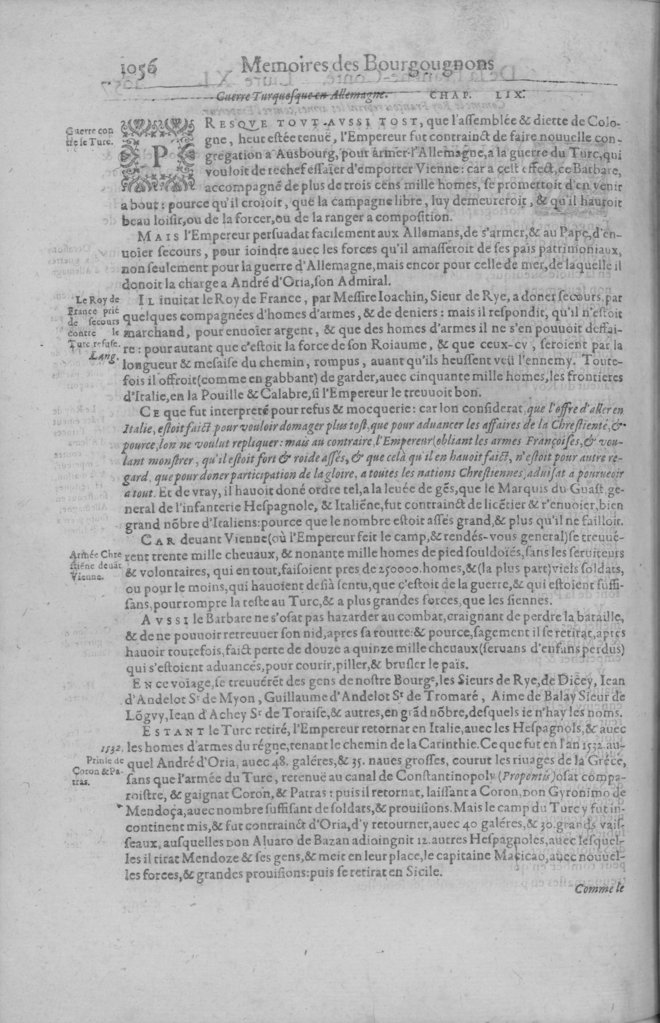 1056
Memoires des Bourgougnons
Guerre Turquesque en Allemagne. CHAP. LIX.
Guerre con
tre le Turc.
PRESQVE TOVT-AVSSI TOST, que l'assemblée & diette de Colo-
gne, heut estée tenuë, l'Empereur fut contrainct de faire nouuelle con-
gregation a Ausbourg, pour armer l'Allemagne, a la guerre du Turc, qui
vouloit de rechef essaier d'emporter Vienne: car a cest effect, ce Barbare,
accompagné de plus de trois cens mille homes, se promettoit d'en venir
a bout: pource qu'il croioit, que la campagne libre, luy demeureroit, & qu'il hauroit
beau loisir, ou de la forcer, ou de la ranger a composition.
MAIS l'Empereur persuadat facilement aux Allemans, de s'armer, & au Pape, d'en-
uoier secours, pour ioindre auec les forces qu'il amasseroit de ses païs patrimoniaux,
non seulement pour la guerre d'Allemagne, mais encor pour celle de mer, de laquelle il
donoit la charge a André d'Oria, son Admiral.
Le Roy de
France prié
de secours
contre le
Turc refuse.
Lang.
IL inuitat le Roy de France, par Messire Ioachin, Sieur de Rye, a doner secours par
quelques compagnées d'homes d'armes, & de deniers: mais il respondit, qu'il n'estoit
marchand, pour enuoier argent, & que des homes d'armes il ne s'en pouuoit deffai-
re: pour autant que c'estoit la force de son Roiaume, & que ceux-cy, seroient par la
longueur & mesaise du chemin, rompus, auant qu'ils heussent veü l'ennemy. Toute-
fois il offroit (comme en gabbant) de garder, auec cinquante mille homes, les frontieres
d'Italie, en la Pouille & Calabre, si l'Empereur le treuuoit bon.
CE que fut interpreté pour refus & mocquerie: car lon considerat, que l'offre d'aller en
Italie, estoit faict pour vouloir domager plus tost, que pour aduancer les affaires de la Chrestienté, &
pource, lon ne voulut repliquer: mais au contraire, l'Empereur obliant les armes Françoises, & vou-
lant monstrer, qu'il estoit fort & roide assés, & que celà qu'il en hauoit faict, n'estoit pour autre re-
gard, que pour doner participation de la gloire, a toutes les nations Chrestiennes, aduisat a pourueoir
a tout. Et de vray, il hauoit doné ordre tel, a la leuée de gẽs, que le Marquis du Guast, ge-
neral de l'infanterie Hespagnole, & Italiẽne, fut contrainct de licẽtier & r'enuoier, bien
grand nõbre d'Italiens: pource que le nombre estoit assés grand, & plus qu'il ne failloit.
Armée Chre
stiẽne deuãt
Vienne.
CAR deuant Vienne (où l'Empereur feit le camp, & rendés-vous general) se treuuê-
rent trente mille cheuaux, & nonante mille homes de pied souldoiés, sans les seruiteurs
& volontaires, qui en tout, faisoient pres de 250000. homes, & (la plus part) viels soldats,
ou pour le moins, qui hauoient desià sentu, que c'estoit de la guerre, & qui estoient suffi-
sans, pour rompre la teste au Turc, & a plus grandes forces, que les siennes.
AVSSI le Barbare ne s'osat pas hazarder au combat, craignant de perdre la bataille,
& de ne pouuoir retreuuer son nid, apres sa routte: & pource, sagement il se retirat, apres
hauoir toutefois, faict perte de douze a quinze mille cheuaux (seruans d'enfans perdus)
qui s'estoient aduancés, pour courir, piller, & brusler le païs.
EN ce voïage, se treuuerẽt des gens de nostre Bourge, les Sieurs de Rye, de Dicey, Iean
d'Andelot Sr de Myon, Guillaume d'Andelot Sr. de Tromaré, Aime de Balay Sieur de
Lõgvy, Iean d'Achey Sr de Toraise, & autres, en grãd nõbre, desquels ie n'hay les noms.
ESTANT le Turc retiré, l'Empereur retornat en Italie, auec les Hespagnols, & auec
1532.
les homes d'armes du régne, tenant le chemin de la Carinthie. Ce que fut en l'an 1532. au-
Prinse de
Coron & Pa-
tras.
quel André d'Oria, auec 48. galéres, & 35. naues grosses, courut les riuages de la Gréce,
sans que l'armée du Turc, retenuë au canal de Constantinopoly (Propontis) osat compa-
roistre, & gaignat Coron, & Patras: puis il retornat, laissant a Coron, DON Gyronimo de
Mendoça, auec nombre suffisant de soldats, & prouisions. Mais le camp du Turc y fut in-
continent mis, & fut contrainct d'Oria, d'y retourner, auec 40 galéres, & 30. grands vais-
seaux, ausquelles DON Aluaro de Bazan adioingnit 12. autres Hespagnoles, auec lesquel-
les il tirat Mendoze & ses gens, & meit en leur place, le capitaine Maçicao, auec nouuel-
les forces, & grandes prouisions: puis se retirat en Sicile.
Comme le